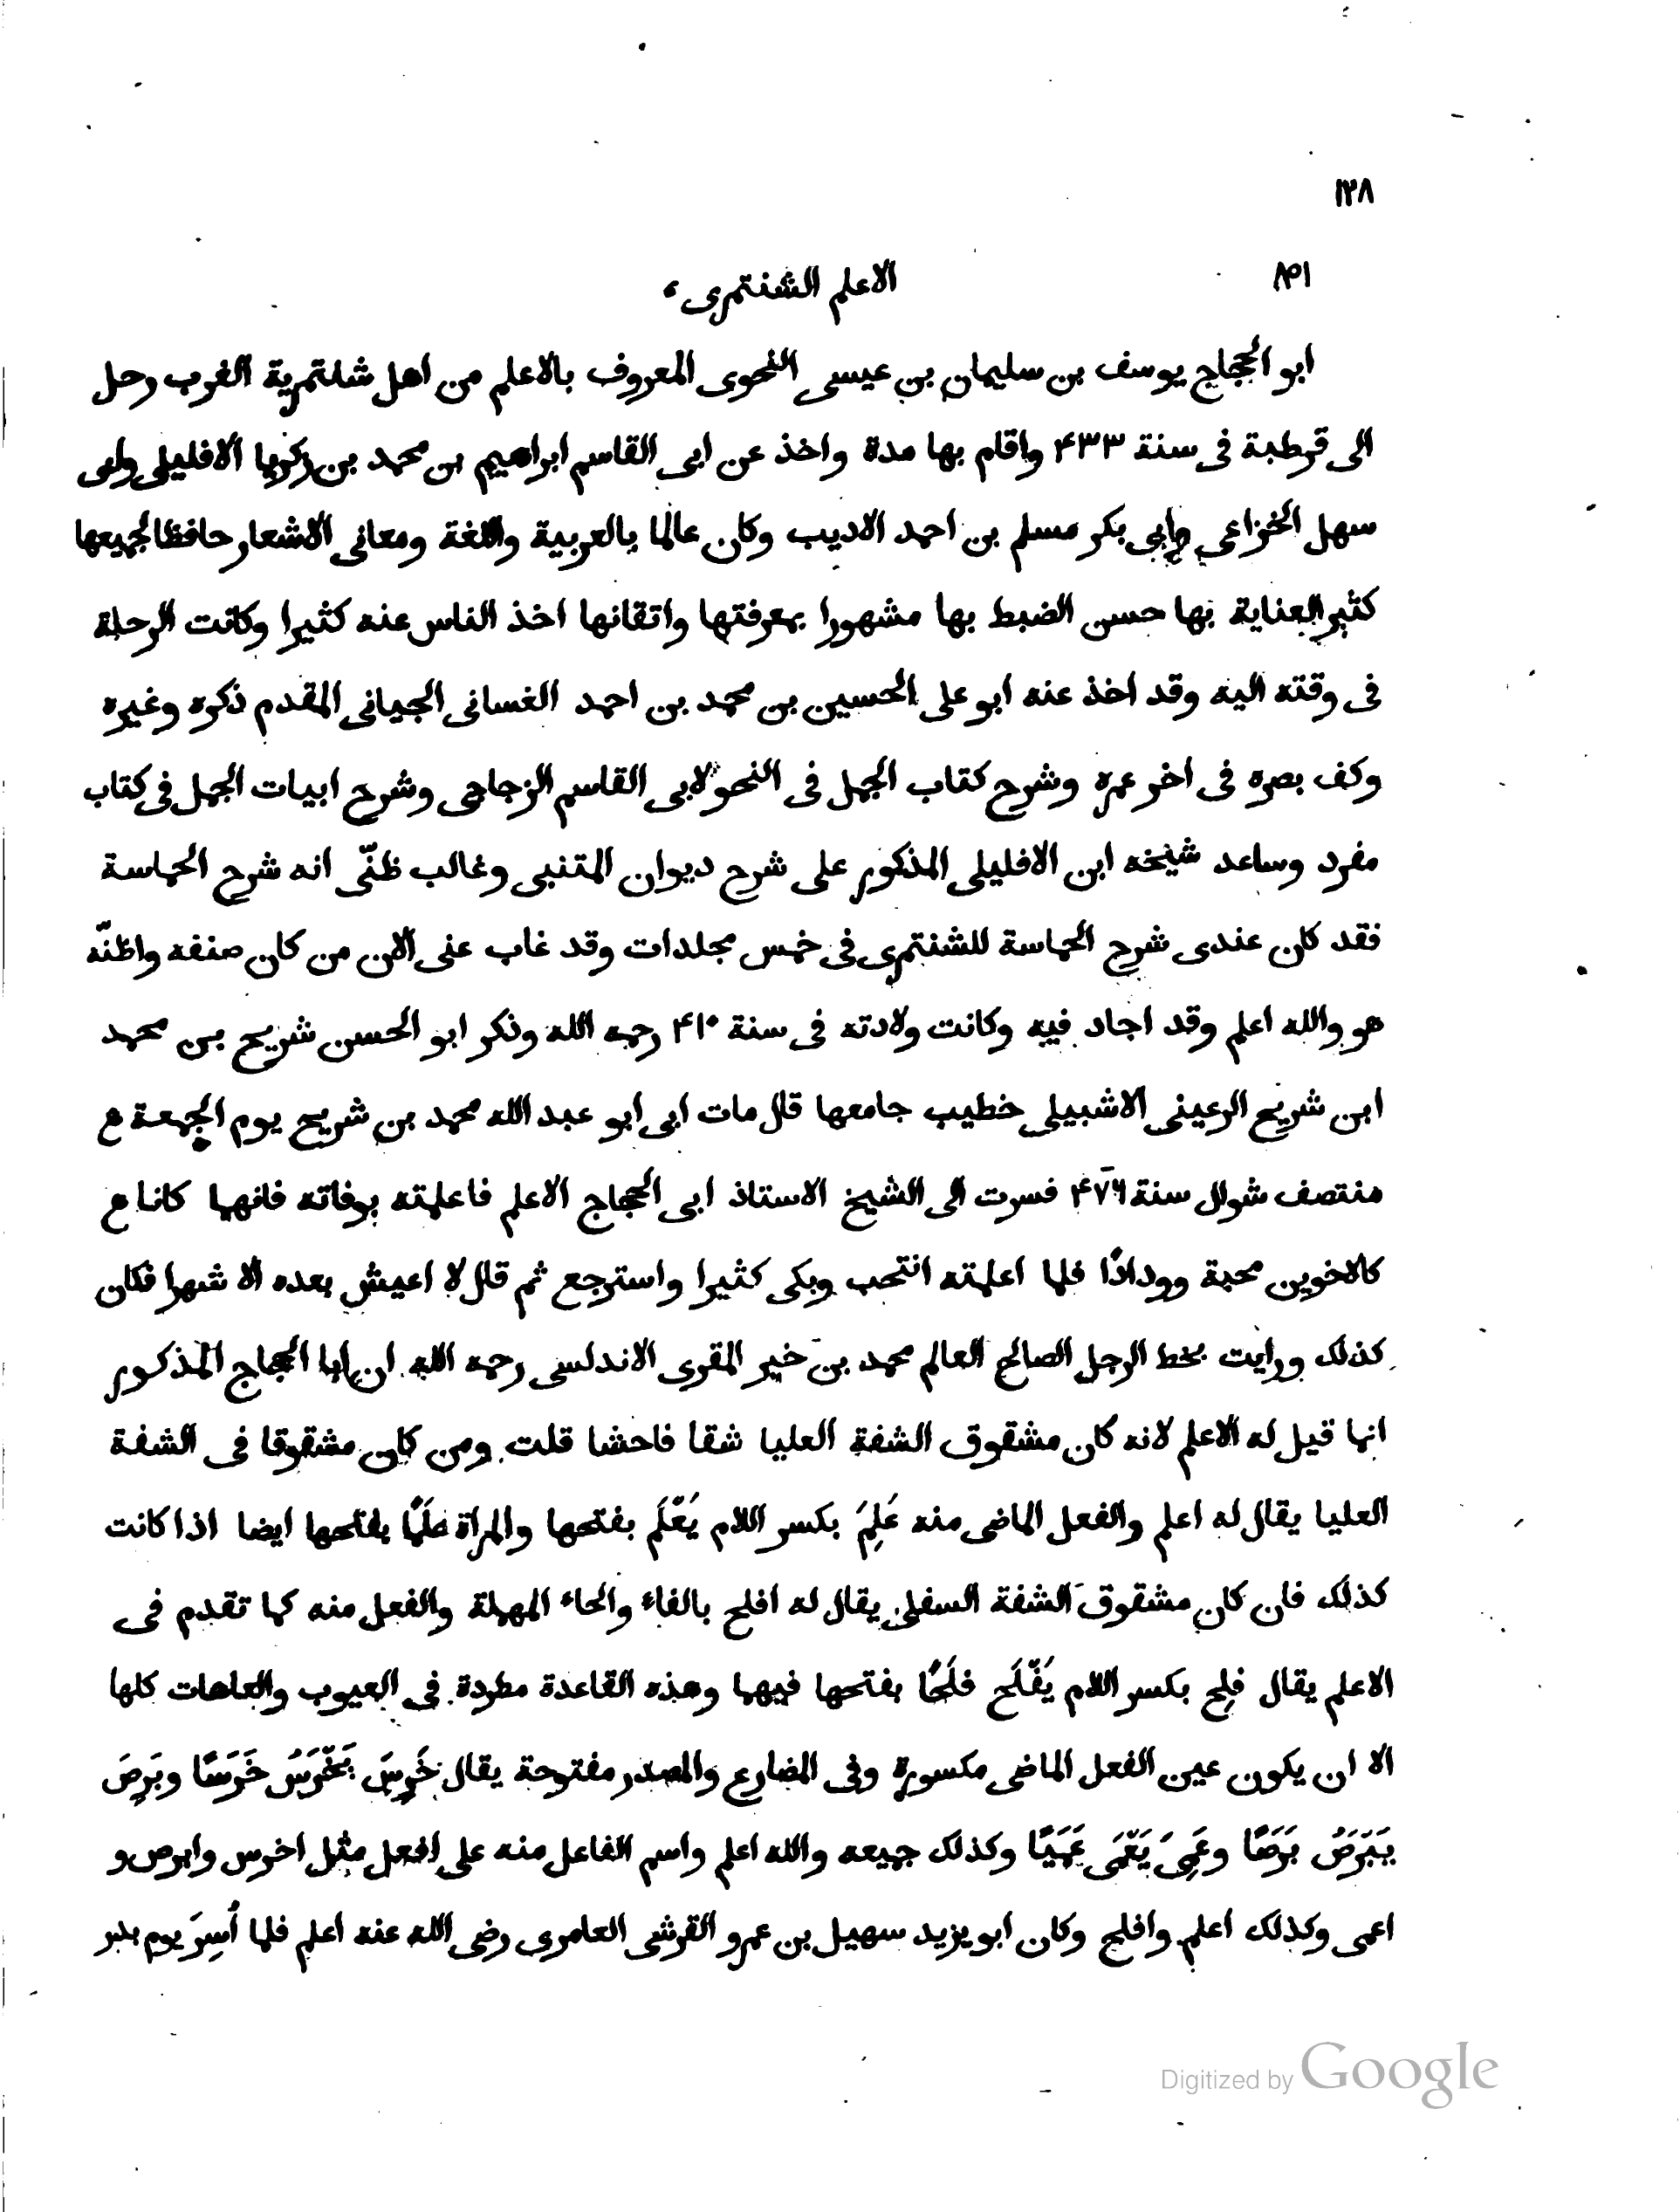 ١٢٨
٨٥١
الاعلم الشنتمرى ،
ابو الحجاج يوسف بن سليمان بن عيسى النحوى المعروف بالاعلم من اهل شنتمرية الغرب رحل
الى قرطبة فى سنة ۴۳۳ واقام بها مدة واخذ عن ابى القاسم ابراهيم بن محمد بن زكريا الافليلى وابى
سهل الخزاعى وابى بكر مسلم بن احمد الاديب وكان عالما بالعربية واللغة ومعانى الاشعار حافظا لجميعها
كثير العناية بها حسن الضبط بها مشهورا بمعرفتها واتقانها اخذ الناس عنه كثيرا وكانت الرحلة
فى وقته اليه وقد اخذ عنه ابو على الحسين بن محمد بن احمد الغسانى الجيانى المقدم ذكره وغيره
وكف بصره فى اخر عمره وشرح كتاب الجمل فى النحو لابى القاسم الزجاجى وشرح ابيات الجمل فى كتاب
مفرد وساعد شيخه ابن الافليلى المذكور على شرح ديوان المتنبى وغالب ظنّى انه شرح الحماسة
فقد كان عندى شرح الحماسة للشنتمرى فى خمس مجلدات وقد غاب عنى الان من كان صنفه واظنّه
هو والله اعلم وقد اجاد فيه وكانت ولادته فى سنة ۴۱۰ رحمه الله وذكر ابو الحسن شريح بن محمد
ابن شريح الرعينى الاشبيلى خطيب جامعها قال مات ابى ابو عبد الله محمد بن شريح يوم الجمعة ع
منتصف شوال سنة ۴۷۶ فسرت الى الشيخ الاستاذ ابى الحجاج الاعلم فاعلمته بوفاته فانهما كانا ع
كالاخوين محبة وودادًا فلما اعلمته انتحب وبكى كثيرا واسترجع ثم قال لا اعيش بعده الا شهرا فكان
كذلك ورايت بخط الرجل الصالح العالم محمد بن خير المقرى الاندلسى رحمه الله ان ابا الحجاج المذكور
انما قيل له الاعلم لانه كان مشقوق الشفة العليا شقا فاحشا قلت ومن كان مشقوقا فى الشفة
العليا يقال له اعلم والفعل الماضى منه عَلِمَ بكسر اللام يَعْلَم بفتحها والمراة عَلَمًا بفتحها ايضا اذا كانت
كذلك فان كان مشقوق الشفة السفلى يقال له افلح بالفاء والحاء المهملة والفعل منه كما تقدم فى
الاعلم يقال فلِح بكسر اللام يَفْلَح فلَحًا بفتحها فيهما وهذه القاعدة مطردة فى العيوب والعاهات كلها
الا ان يكون عين الفعل الماضى مكسورة وفى المضارع والمصدر مفتوحة يقال خَرِسَ يَخْرَسُ خَرَسًا وبَرِصَ
يَبْرَصُ بَرَصًا وعَمِىَ يَعْمَى عَمَيًا وكذلك جميعه والله اعلم واسم الفاعل منه على افعل مثل اخرس وابرص و
اعمى وكذلك اعلم وافلح وكان ابو يزيد سهيل بن عمرو القرشى العامرى رضى الله عنه اعلم فلما أُسِرَ يوم بدر
Digitized by Google